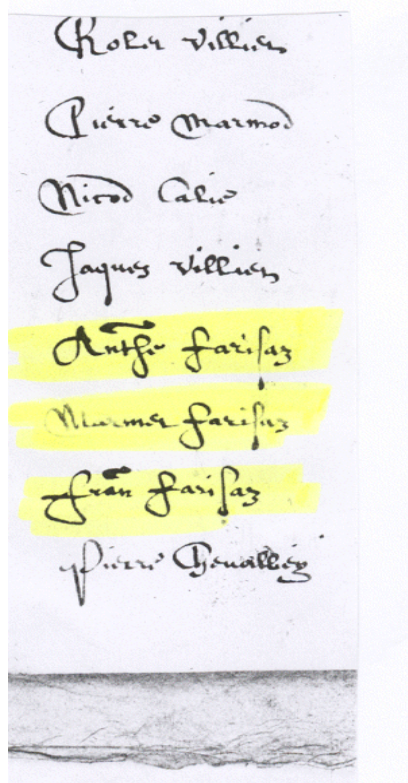 Rolet Villien
Pierre Marmod
Nicod Calie
Jaques Villien
Anthe farisaz
Mermet farisaz
fran farisaz
Pierre Chevalliez